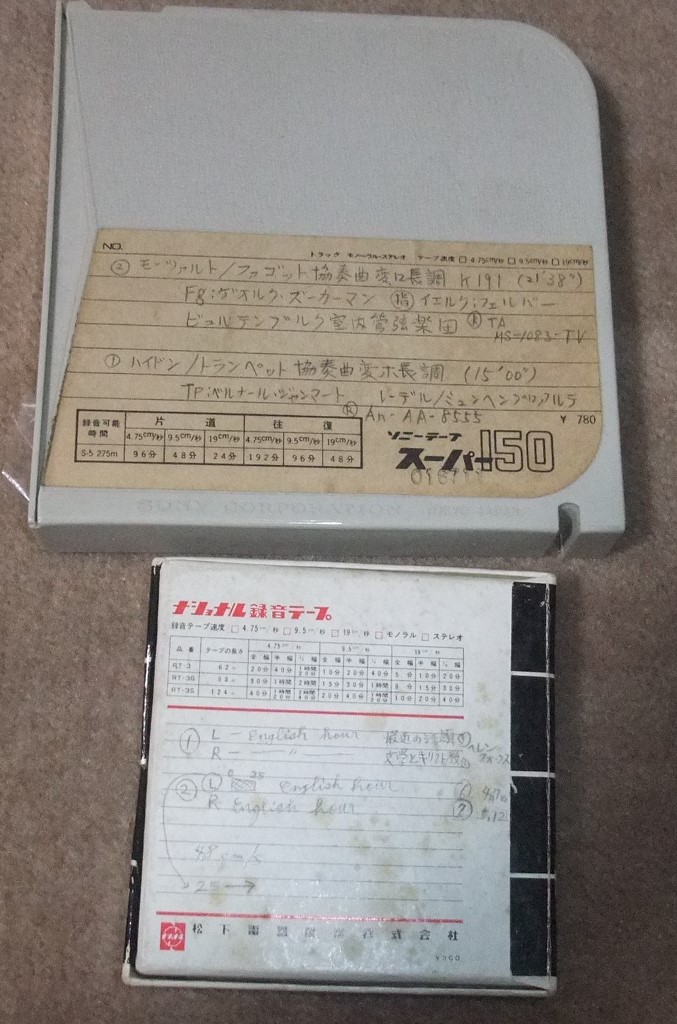 NO.
トラック モノーラル・ステレオ テープ速度 □ 4.75cm/秒 □ 9.5cm/秒 □ 19cm/秒
② モーツァルト/ファゴット協奏曲変ロ長調 K191 (21'38")
Fg:ゲオルク・ズーカーマン 指 イエルク・フェルバー
ビュルテンブルク室内管弦楽団 Ⓡ TA
MS=1083-TV
① ハイドン/トランペット協奏曲変ホ長調 (15'00")
TP:ベルナール・ジャンマート レーデル/ミュンヘンプロ・アルテ
Ⓡ An-AA-8555
¥ 780
録音可能時間 片道 往復
4.75cm/秒 9.5cm/秒 19cm/秒 4.75cm/秒 9.5cm/秒 19cm/秒
S-5 275m 96分 48分 24分 192分 96分 48分
ソニーテープ
スーパー150
ナショナル録音テープ
録音テープ速度 □ 4.75cm/秒 □ 9.5cm/秒 □ 19cm/秒 □ モノラル □ ステレオ
品番 テープの長さ 4.75cm/秒 9.5cm/秒 19cm/秒
全幅 半幅 ¼幅 全幅 半幅 ¼幅 全幅 半幅 ¼幅
RT-3 62m 20分 40分 1時間20分 10分 20分 40分 5分 10分 20分
30分 1時間 2時間 15分 30分 1時間 8分 15分 30分
124m 40分 1時間20分 20分 40分 10分 20分 40分
① L - English hour 最近の
R - 〃 文学とキリスト教
② Ⓛ 0 25 English hour
R English hour
4.8 cm/s
25 →
松下電器産業株式会社